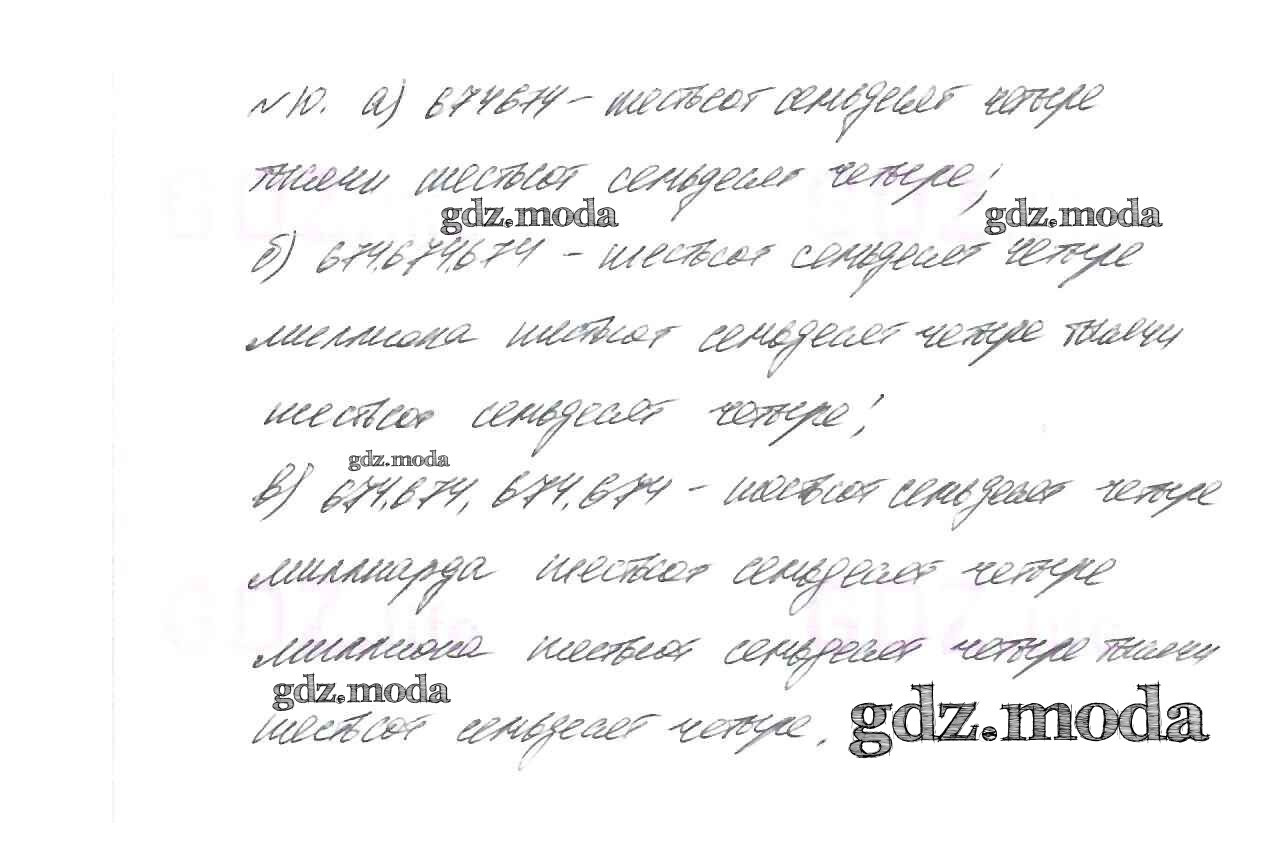 №10. а) 674674 – шестьсот семьдесят четыре
тысячи шестьсот семьдесят четыре;
gdz.moda gdz.moda
б) 674.674.674 – шестьсот семьдесят четыре
миллиона шестьсот семьдесят четыре тысячи
шестьсот семьдесят четыре;
gdz.moda
в) 674.674, 674.674 – шестьсот семьдесят четыре
миллиарда шестьсот семьдесят четыре
миллиона шестьсот семьдесят четыре тысячи
gdz.moda
шестьсот семьдесят четыре.
gdz.moda